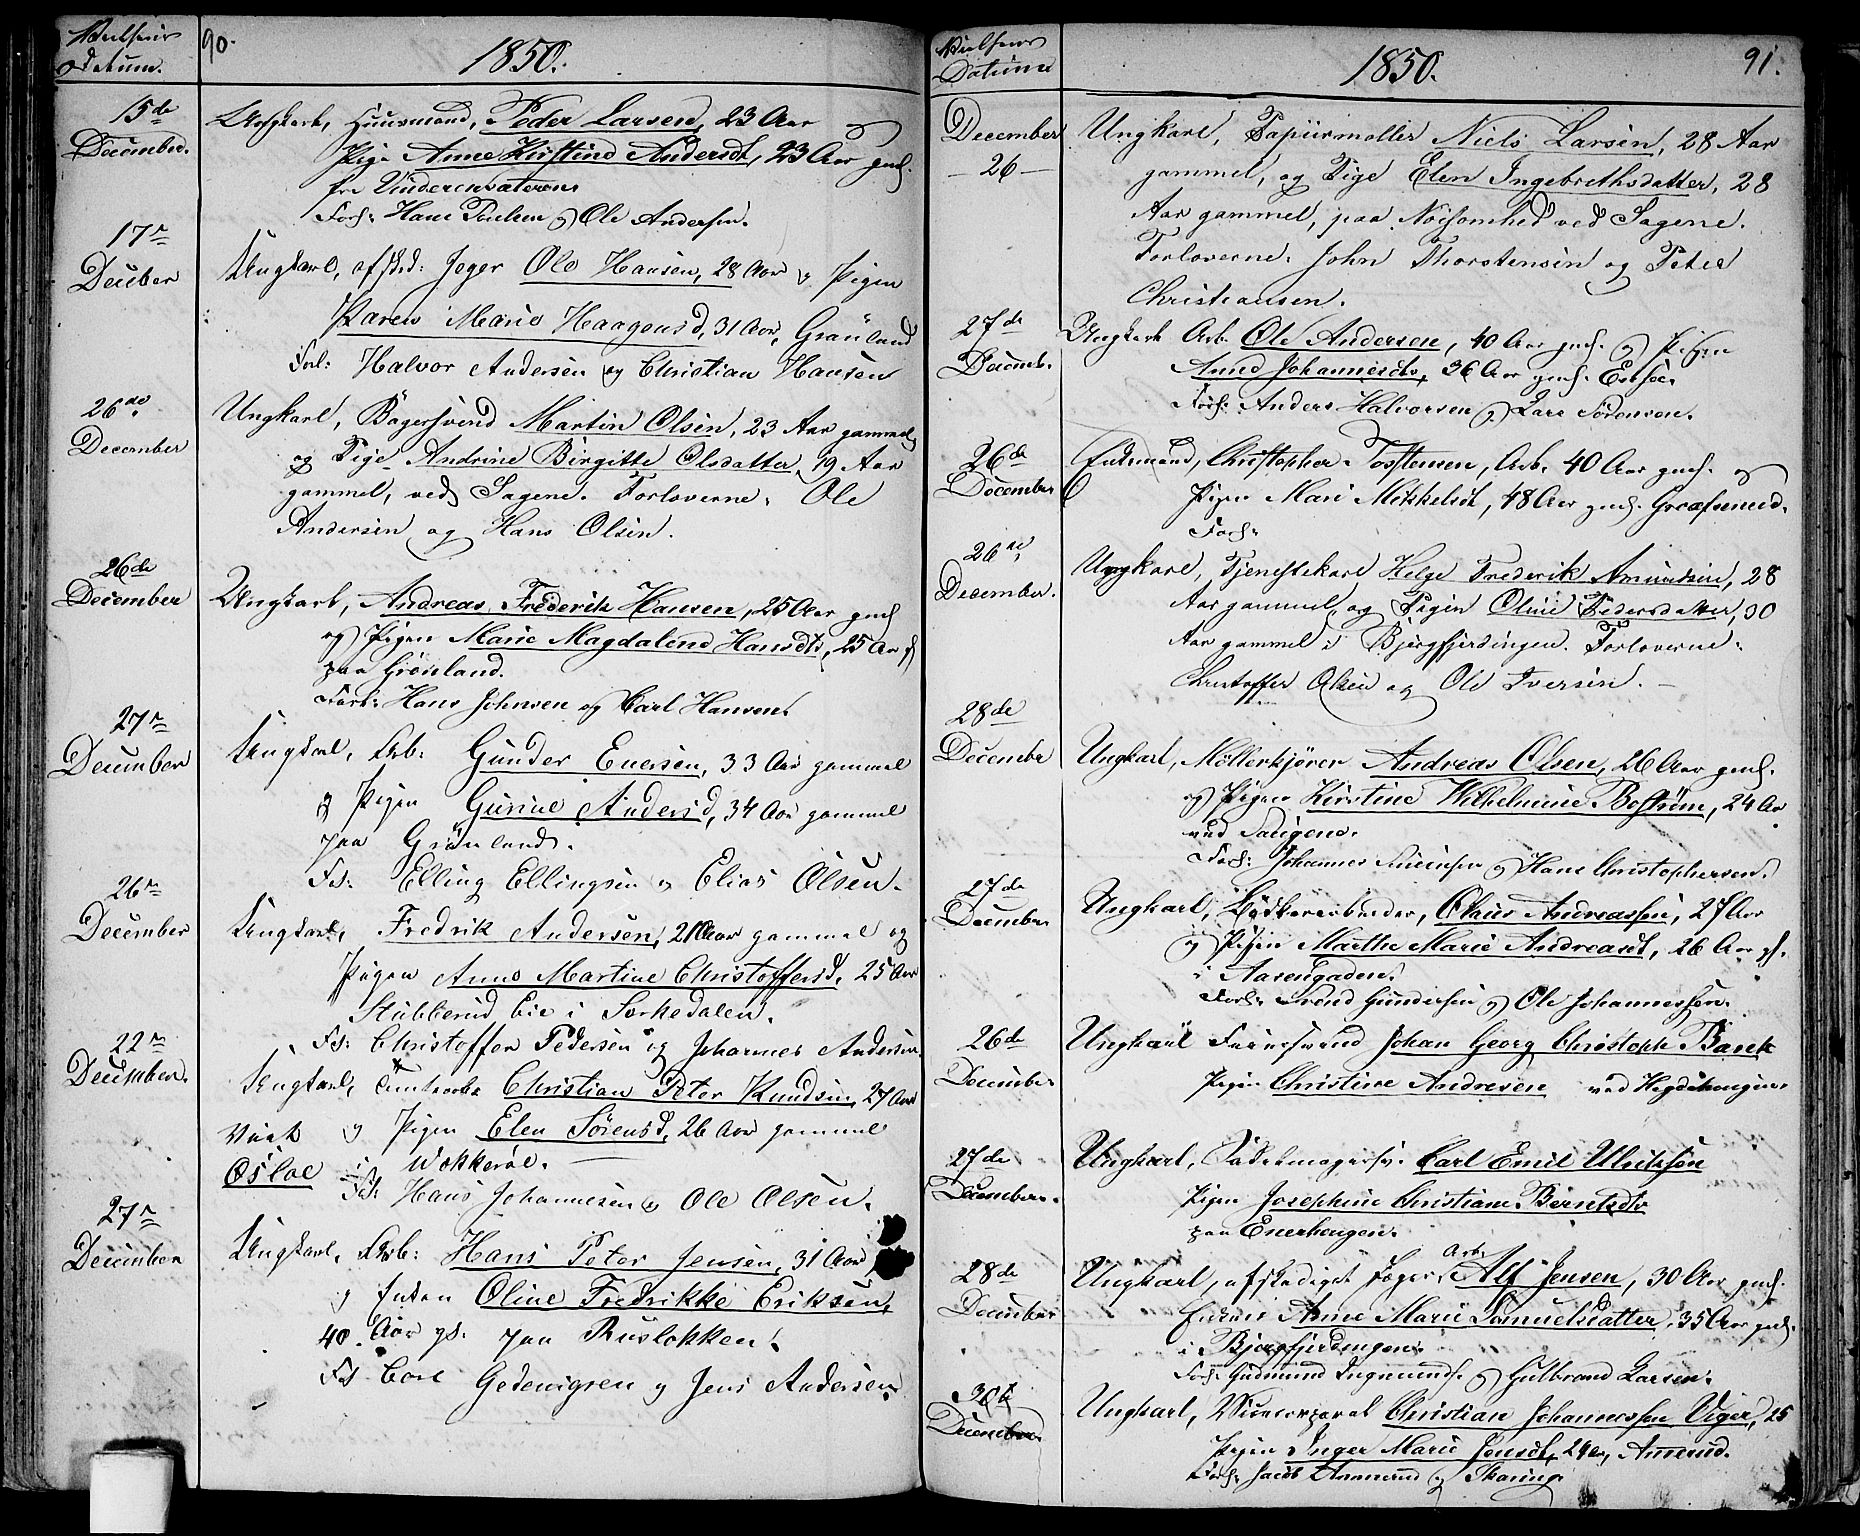 Vielsens
Datum.
90.
1850.
15de
December.
Ungkarl, Huusmand, Peder Larsen, 23 Aar og
Pige Anne Kirstine Andersdt, 23 Aar gml.
fra Vinderen
Forl: Hans Poulsen og Ole Andersen.
17n
December
Ungkarl, afsked: Jeger Ole Hansen, 28 Aar og Pigen
Karen Marie Haagensd, 31 Aar, Grønland
Forl: Halvor Andersen og Christian Hansen
26de
December
Ungkarl, Bagersvend Martin Olsen, 23 Aar gammel
og Pige Andrine Birgitte Olsdatter, 19 Aar
gammel, ved Sagene. Forloverne: Ole
Andersen og Hans Olsen.
26de
December
Ungkarl, Andreas Frederik Hansen, 25 Aar gml
og Pigen Marie Magdalene Hansdt, 25 Aar gl
paa Grønland.
Forl: Hans Johnsen og Carl Hansen.
27n
December
Ungkarl, Arb: Gunder Eversen, 33 Aar gammel
og Pigen Gurine Andersd, 34 Aar gammel
paa Grønland.
Fs: Elling Ellingsen og Elias Olsen.
26n
December
Ungkarl, Fredrik Andersen, 21 Aar gammel og
Pigen Anne Martine Christoffersd, 25 Aar
Stubberud Eie i Sørkedalen.
Fs: Christoffer Pedersen og Johannes Andersen
22n
December.
Ungkarl, Christian Peter Knudsen, 27 Aar
Viet og Pigen Elen Sörensd, 26 Aar gammel
Osloe i Wækkerøe.
Fs: Hans Johannesen og Ole Olsen.
27n
December
Ungkarl, Arb: Hans Peter Jensen, 31 Aar
og Enken Oline Fredrikke Eriksen,
40 Aar gl. paa Ruslokken.
Fs Carl Gedevigsen og Jens Andersen
Vielsens
Datum
1850.
91.
December
- 26 -
Ungkarl, Papiirmøller Niels Larsen, 28 Aar
gammel, og Pige Elen Ingebrethsdatter, 28
Aar gammel, paa Nøisomhed ved Sagene.
Forloverne: John Thorstensen og Peter
Christiansen.
27de
Decemb.
Ungkarl Arb. Ole Andersen, 40 Aar gml. og Pigen
Anne Johannesdt, 36 Aar gml.
Forl: Anders Halvorsen og Lars Sörensen.
26de
December
Enkemand, Christopher Tostensen, Arb. 40 Aar gml. og
Pigen Mari Mikkelsdt, 48 Aar gml. Græfseneid.
Forl:
26de
December.
Ungkarl, Tjenestekarl Helge Frederik Amundsen, 28
Aar gammel, og Pigen Oline Pedersdatter, 30
Aar gammel i Bjergfjerdingen. Forloverne:
Christoffer Olsen og Ole Iversen. -
28de
December
Ungkarl, Möllerkjører Andreas Olsen, 26 Aar gml.
og Pigen Kirstine Wilhelmine Boström, 24 Aar
ved Saugene.
Forl: Johannes og Hans Christophersen.
27de
December
Ungkarl, Olaus Andreassen, 27 Aar
og Pigen Marthe Marie Andreasdt, 26 Aar gl.
i Aasengaden.
Forl: Svend Gundersen og Ole Johannessen.
26de
December
Ungkarl Johan Georg Christoph Barck
Pigen Christine Andresen ved Hegdehougen
27de
December.
Ungkarl, Sadelmagersv. Carl Emil Ulrichsen
Pigen Josephine Christiane Berntsdt
paa Enerhougen.
28de
December
Ungkarl, afskediget Jæger, Arb. Alf Jensen, 30 Aar gml.
Enken Anne Marie Samuelsdatter, 35 Aar gml.
i Bjergfjerdingen.
Forl: Gudmund Ingmunds. og Gulbrand Larsen.
30t
December.
Ungkarl, Christian Johannessen Viger, 25
Pigen Inger Marie Jensdt, 24 Aar, Ammerud.
Forl: Jacob Ammerud og